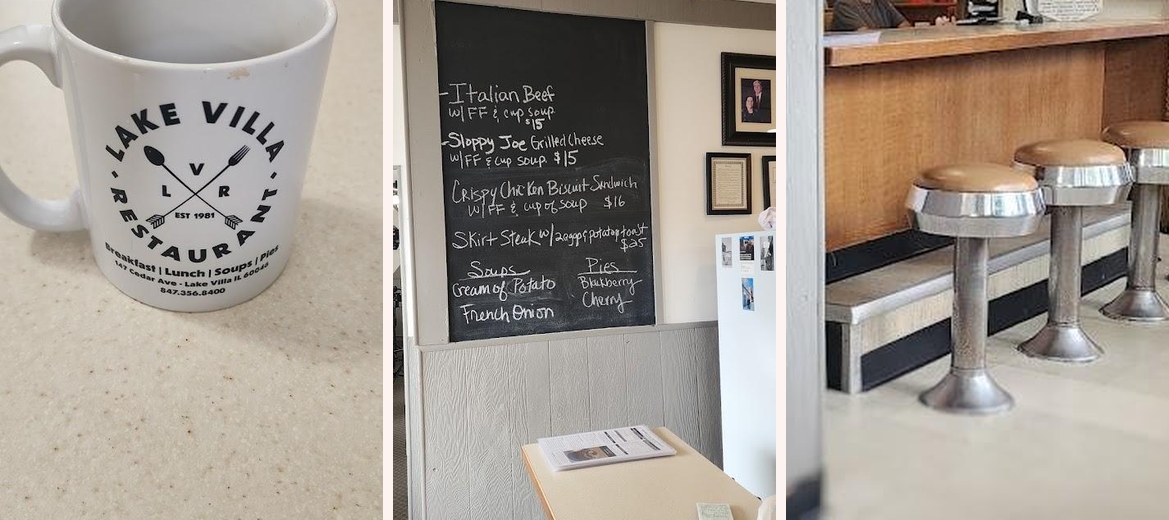 LAKE VILLA
V
L R
EST 1981
RESTAURANT
Breakfast | Lunch | Soups | Pies
147 Cedar Ave - Lake Villa IL 60046
847.356.8400
-Italian Beef
w/FF & cup soup
$15
-Sloppy Joe Grilled Cheese
w/FF & cup soup $15
Crispy Chicken Biscuit Sandwich
w/FF & cup of soup $16
Skirt Steak w/2eggs potatoe toast
$25
Soups
Cream of Potato
French Onion
Pies
Blackberry
Cherry